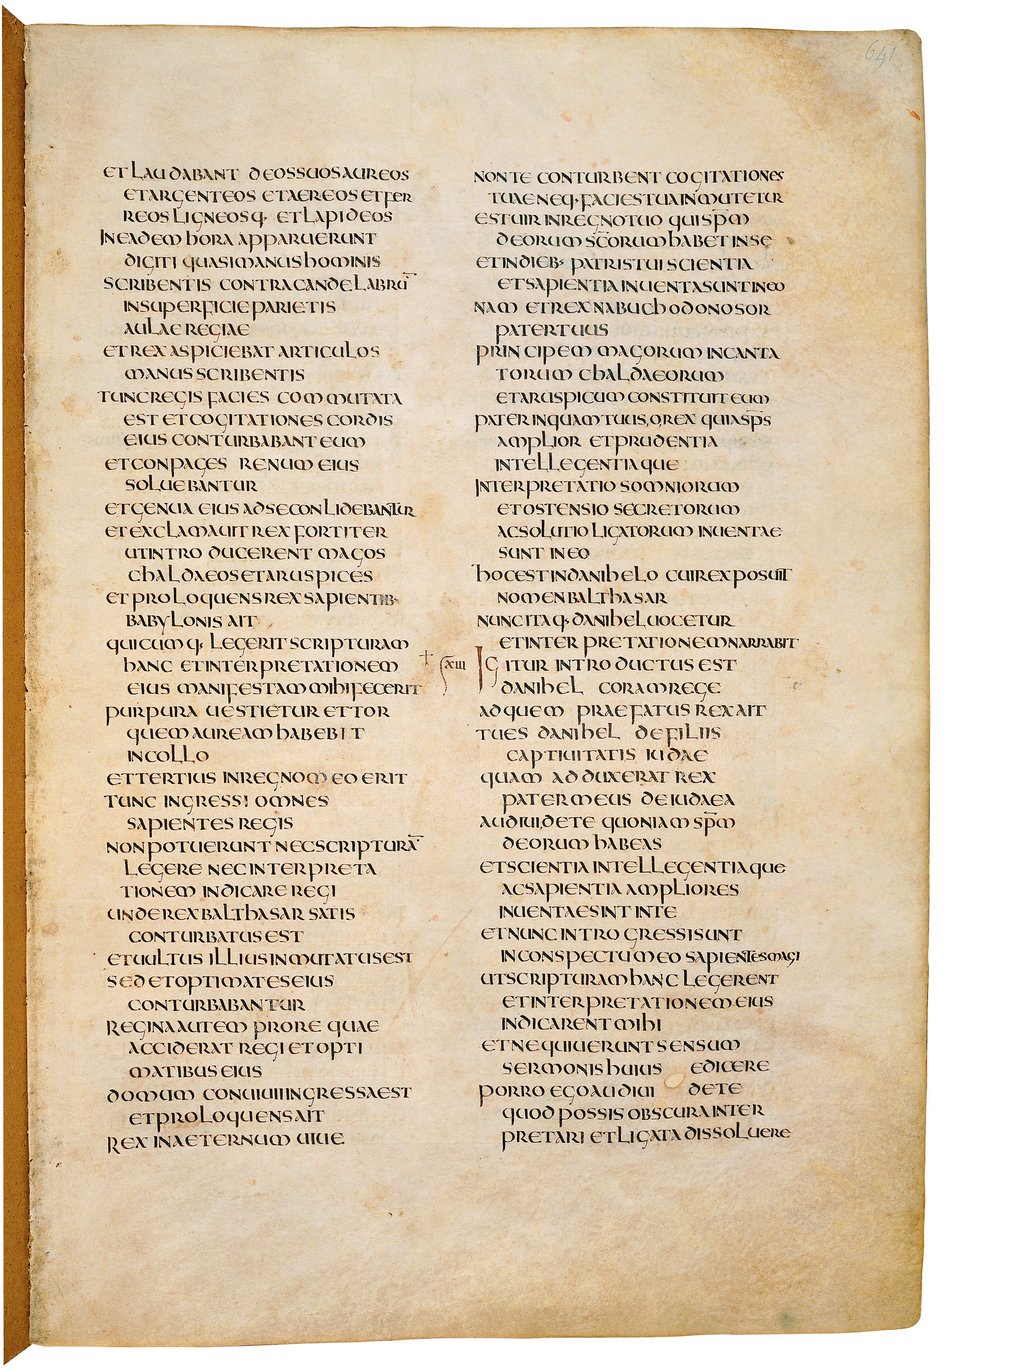 641
ET LAUDABANT DEOS SUOS AUREOS
ET ARGENTEOS ET AEREOS ET FER
REOS LIGNEOSQ· ET LAPIDEOS
IN EADEM HORA APPARUERUNT
DIGITI QUASI MANUS HOMINIS
SCRIBENTIS CONTRA CANDELABRŪ
IN SUPERFICIE PARIETIS
AULAE REGIAE
ET REX ASPICIEBAT ARTICULOS
MANUS SCRIBENTIS
TUNC REGIS FACIES COMMUTATA
EST ET COGITATIONES CORDIS
EIUS CONTURBABANT EUM
ET CONPAGES RENUM EIUS
SOLUEBANTUR
ET GENUA EIUS AD SE CONLIDEBANTUR
ET EXCLAMAUIT REX FORTITER
UT INTRODUCERENT MAGOS
CHALDAEOS ET ARUSPICES
ET PROLOQUENS REX SAPIENTIB·
BABYLONIS AIT
QUICUMQ· LEGERIT SCRIPTURAM
HANC ET INTERPRETATIONEM
EIUS MANIFESTAM MIHI FECERIT
PURPURA UESTIETUR ET TOR
QUEM AUREAM HABEBIT
IN COLLO
ET TERTIUS IN REGNO MEO ERIT
TUNC INGRESSI OMNES
SAPIENTES REGIS
NON POTUERUNT NEC SCRIPTURĀ
LEGERE NEC INTERPRETA
TIONEM INDICARE REGI
UNDE REX BALTHASAR SATIS
CONTURBATUS EST
ET UULTUS ILLIUS INMUTATUS EST
SED ET OPTIMATES EIUS
CONTURBABANTUR
REGINA AUTEM PRO RE QUAE
ACCIDERAT REGI ET OPTI
MATIBUS EIUS
DOMUM CONUIUII INGRESSA EST
ET PROLOQUENS AIT
REX IN AETERNUM UIUE
NON TE CONTURBENT COGITATIONES
TUAE NEQ· FACIES TUA INMUTETUR
EST UIR IN REGNO TUO QUI SPM̄
DEORUM SC̄ORUM HABET IN SE
ET IN DIEB· PATRIS TUI SCIENTIA
ET SAPIENTIA INUENTA SUNT IN EO
NAM ET REX NABUCHODONOSOR
PATER TUUS
PRINCIPEM MAGORUM INCANTA
TORUM CHALDAEORUM
ET ARUSPICUM CONSTITUIT EUM
PATER INQUAM TUUS, O, REX QUIA SP̄S
AMPLIOR ET PRUDENTIA
INTELLEGENTIAQUE
INTERPRETATIO SOMNIORUM
ET OSTENSIO SECRETORUM
AC SOLUTIO LIGATORUM INUENTAE
SUNT IN EO
HOC EST IN DANIHELO CUI REX POSUIT
NOMEN BALTHASAR
NUNC ITAQ· DANIHEL UOCETUR
ET INTERPRETATIONEM NARRABIT
XIII IGITUR INTRODUCTUS EST
DANIHEL CORAM REGE
AD QUEM PRAEFATUS REX AIT
TU ES DANIHEL DE FILIIS
CAPTIUITATIS IUDAE
QUAM ADDUXERAT REX
PATER MEUS DE IUDAEA
AUDIUI, DE TE QUONIAM SPM̄
DEORUM HABEAS
ET SCIENTIA INTELLEGENTIAQUE
AC SAPIENTIA AMPLIORES
INUENTAE SINT IN TE
ET NUNC INTROGRESSI SUNT
IN CONSPECTU MEO SAPIENTES MAGI
UT SCRIPTURAM HANC LEGERENT
ET INTERPRETATIONEM EIUS
INDICARENT MIHI
ET NEQUIUERUNT SENSUM
SERMONIS HUIUS EDICERE
PORRO EGO AUDIUI DE TE
QUOD POSSIS OBSCURA INTER
PRETARI ET LIGATA DISSOLUERE